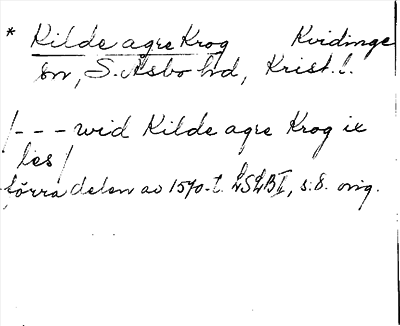 * Kilde agre Krog Kvidinge
sn, S. Åsbo hd, Krist. l.
/- - - wid Kilde agre Krog ix
les/
förra delen av 1570-t. LSLB II, s. 8. orig.